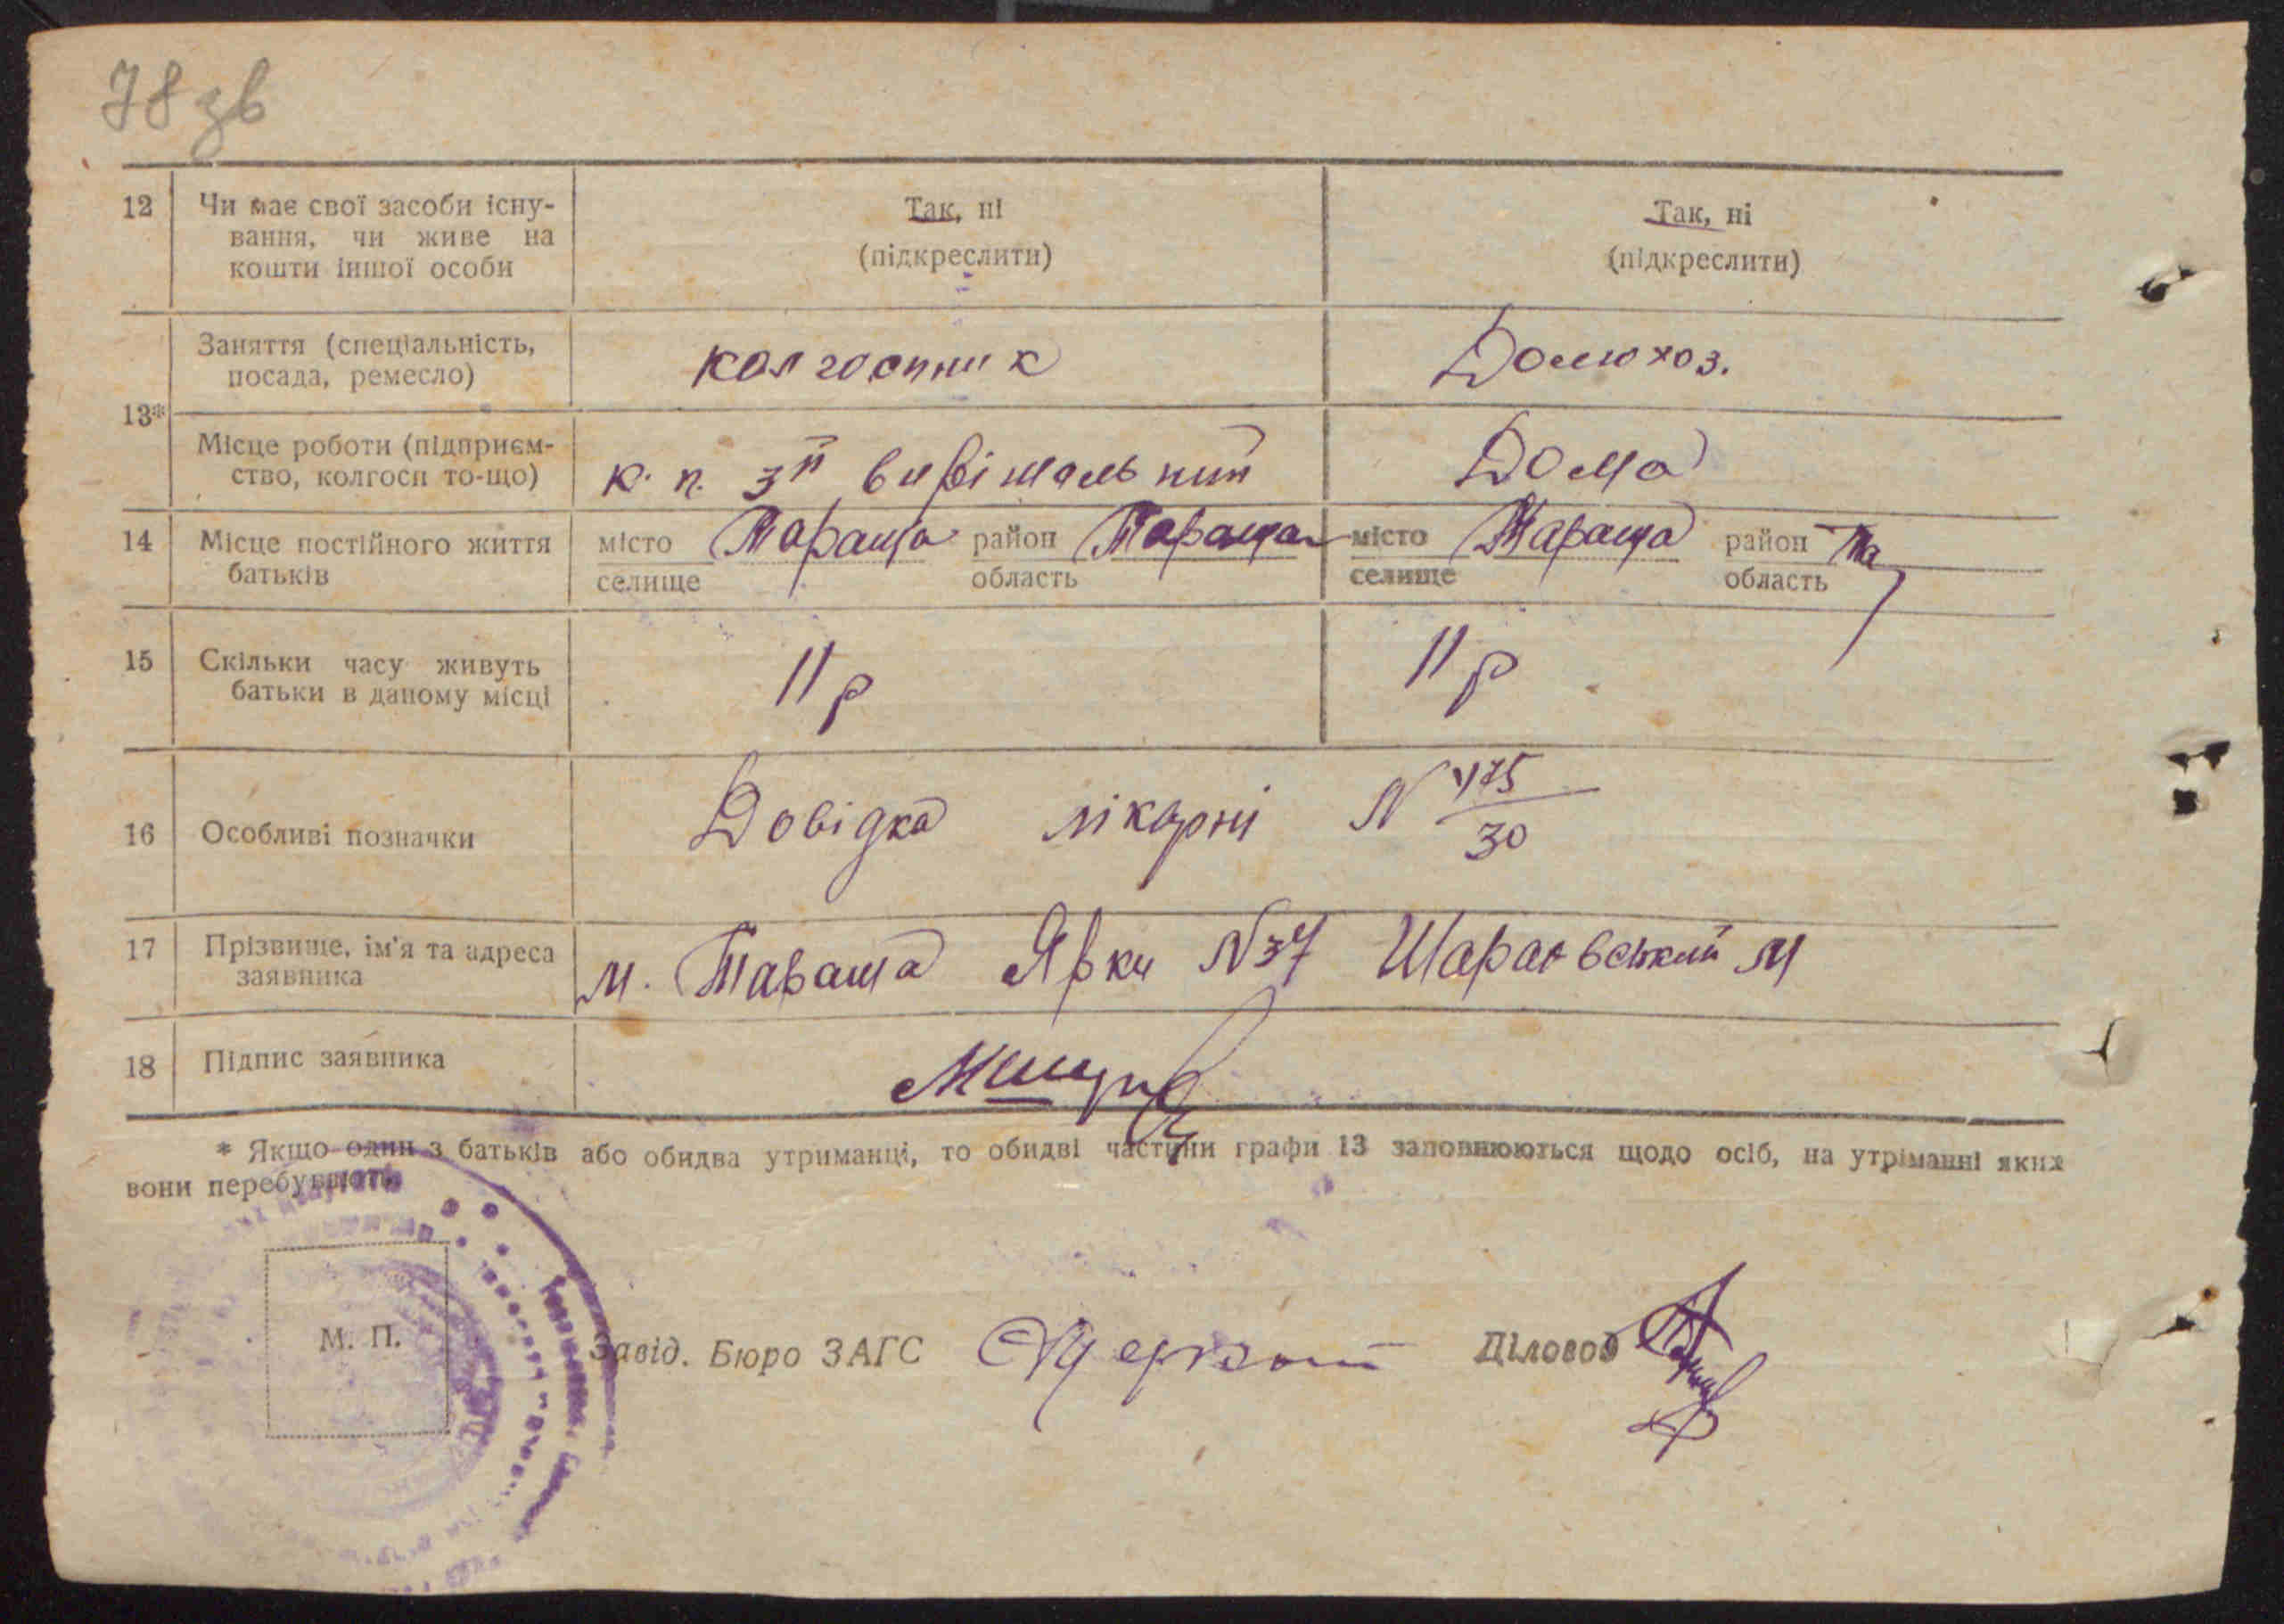 78 зв
12 Чи має свої засоби існу-
вання, чи живе на
кошти іншої особи
Так, ні
(підкреслити)
Так, ні
(підкреслити)
13*
Заняття (спеціальність,
посада, ремесло)
колгоспник
Домохоз.
Місце роботи (підприєм-
ство, колгосп то-що)
к. п. 3й вирішальний
Дома
14 Місце постійного життя
батьків
місто Тараща район Тараща
селище область
місто Тараща район Та
селище область
15 Скільки часу живуть
батьки в даному місці
11 р
11 р
16 Особливі позначки
Довідка лікарні N 475/30
17 Прізвище, ім'я та адреса
заявника
м. Тараща Ярки N 37 М
18 Підпис заявника
* Якщо один з батьків або обидва утриманці, то обидві частини графи 13 заповнюються щодо осіб, на утріманні яких
вони перебувають
М. П.
Завід. Бюро ЗАГС
Діловод